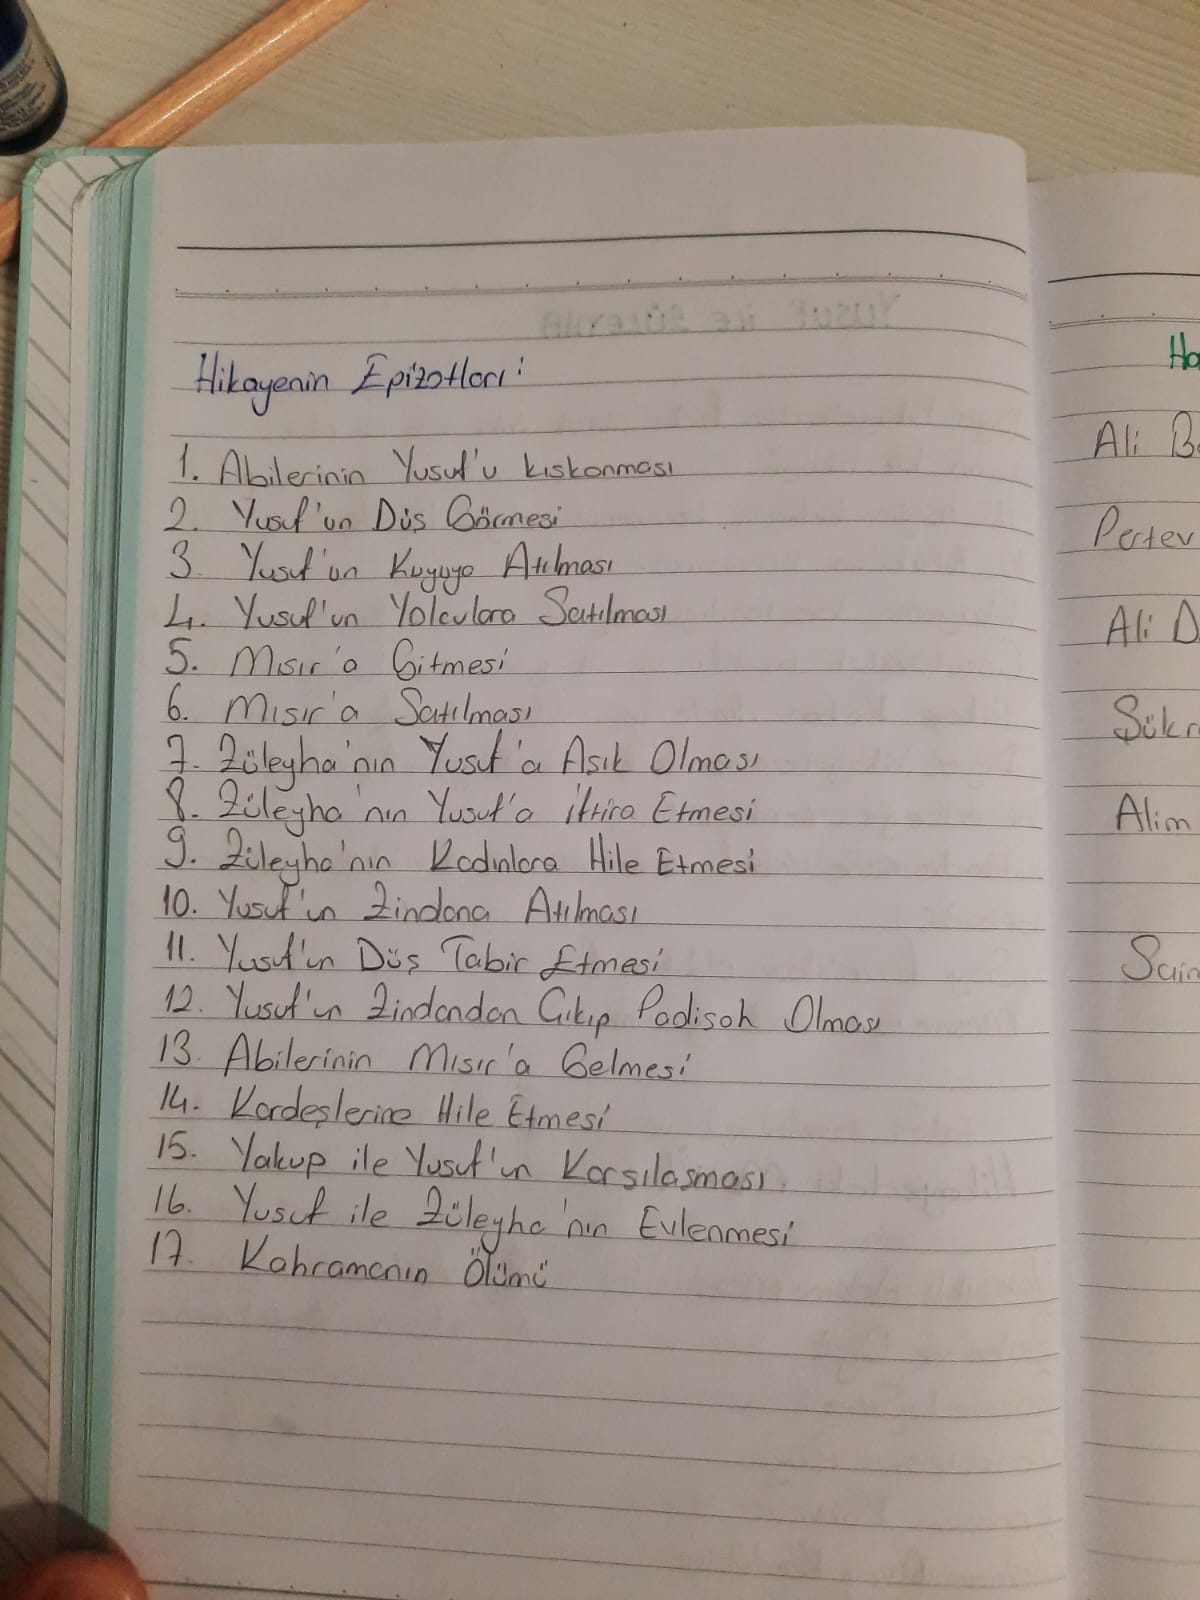 YUSUF iLE ZÜLEYHA
Hikayenin Epizotları:
1. Abilerinin Yusuf'u kıskanması
2. Yusuf'un Düş Görmesi
3. Yusuf'un Kuyuya Atılması
4. Yusuf'un Yolculara Satılması
5. Mısır'a Gitmesi
6. Mısır'a Satılması
7. Züleyha'nın Yusuf'a Aşık Olması
8. Züleyha'nın Yusuf'a İftira Etmesi
9. Züleyha'nın Kadınlara Hile Etmesi
10. Yusuf'un Zindana Atılması
11. Yusuf'un Düş Tabir Etmesi
12. Yusuf'un Zindandan Çıkıp Padişah Olması
13. Abilerinin Mısır'a Gelmesi
14. Kardeşlerine Hile Etmesi
15. Yakup ile Yusuf'un Karşılaşması
16. Yusuf ile Züleyha'nın Evlenmesi
17. Kahramanın Ölümü
Ha
Ali B
Pertev
Ali D
Şükr
Alim
Saim